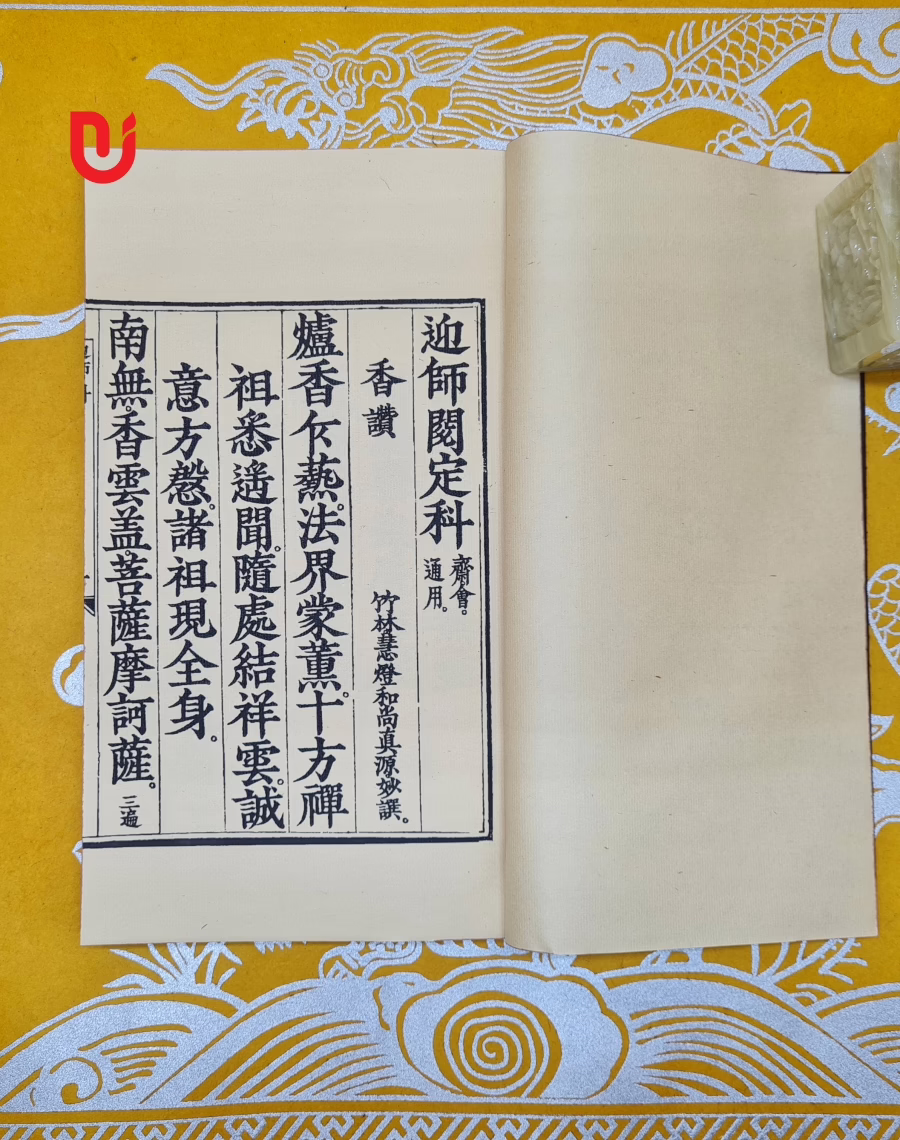 迎師閱定科 齋會。通用。
香讚 竹林慧燈和尚真源妙譔。
爐香乍爇。法界蒙薰。十方禪
祖悉遥聞。隨處結祥雲。誠
意方慇。諸祖現全身。
南無。香雲盖。菩薩摩訶薩。三遍